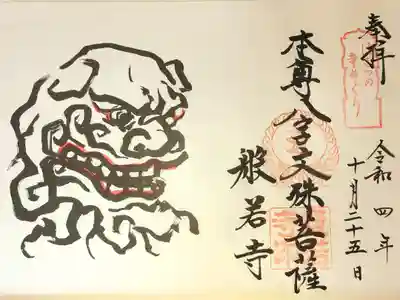 奉拝
令和四年
十月二十五日
本尊八字文殊菩薩
般若寺